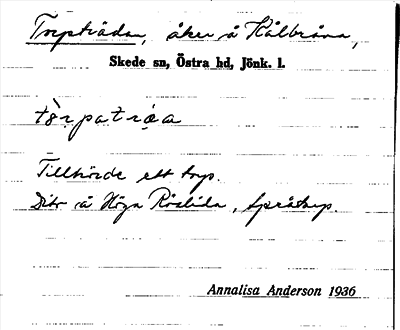 Torpträdan, åker å Kålbråna,
Skede sn, Östra hd, Jönk. l.
tòrpatrǻa
Tillhörde ett torp.
Dito å Höga Röslida, Språtorp.
Annalisa Anderson 1936